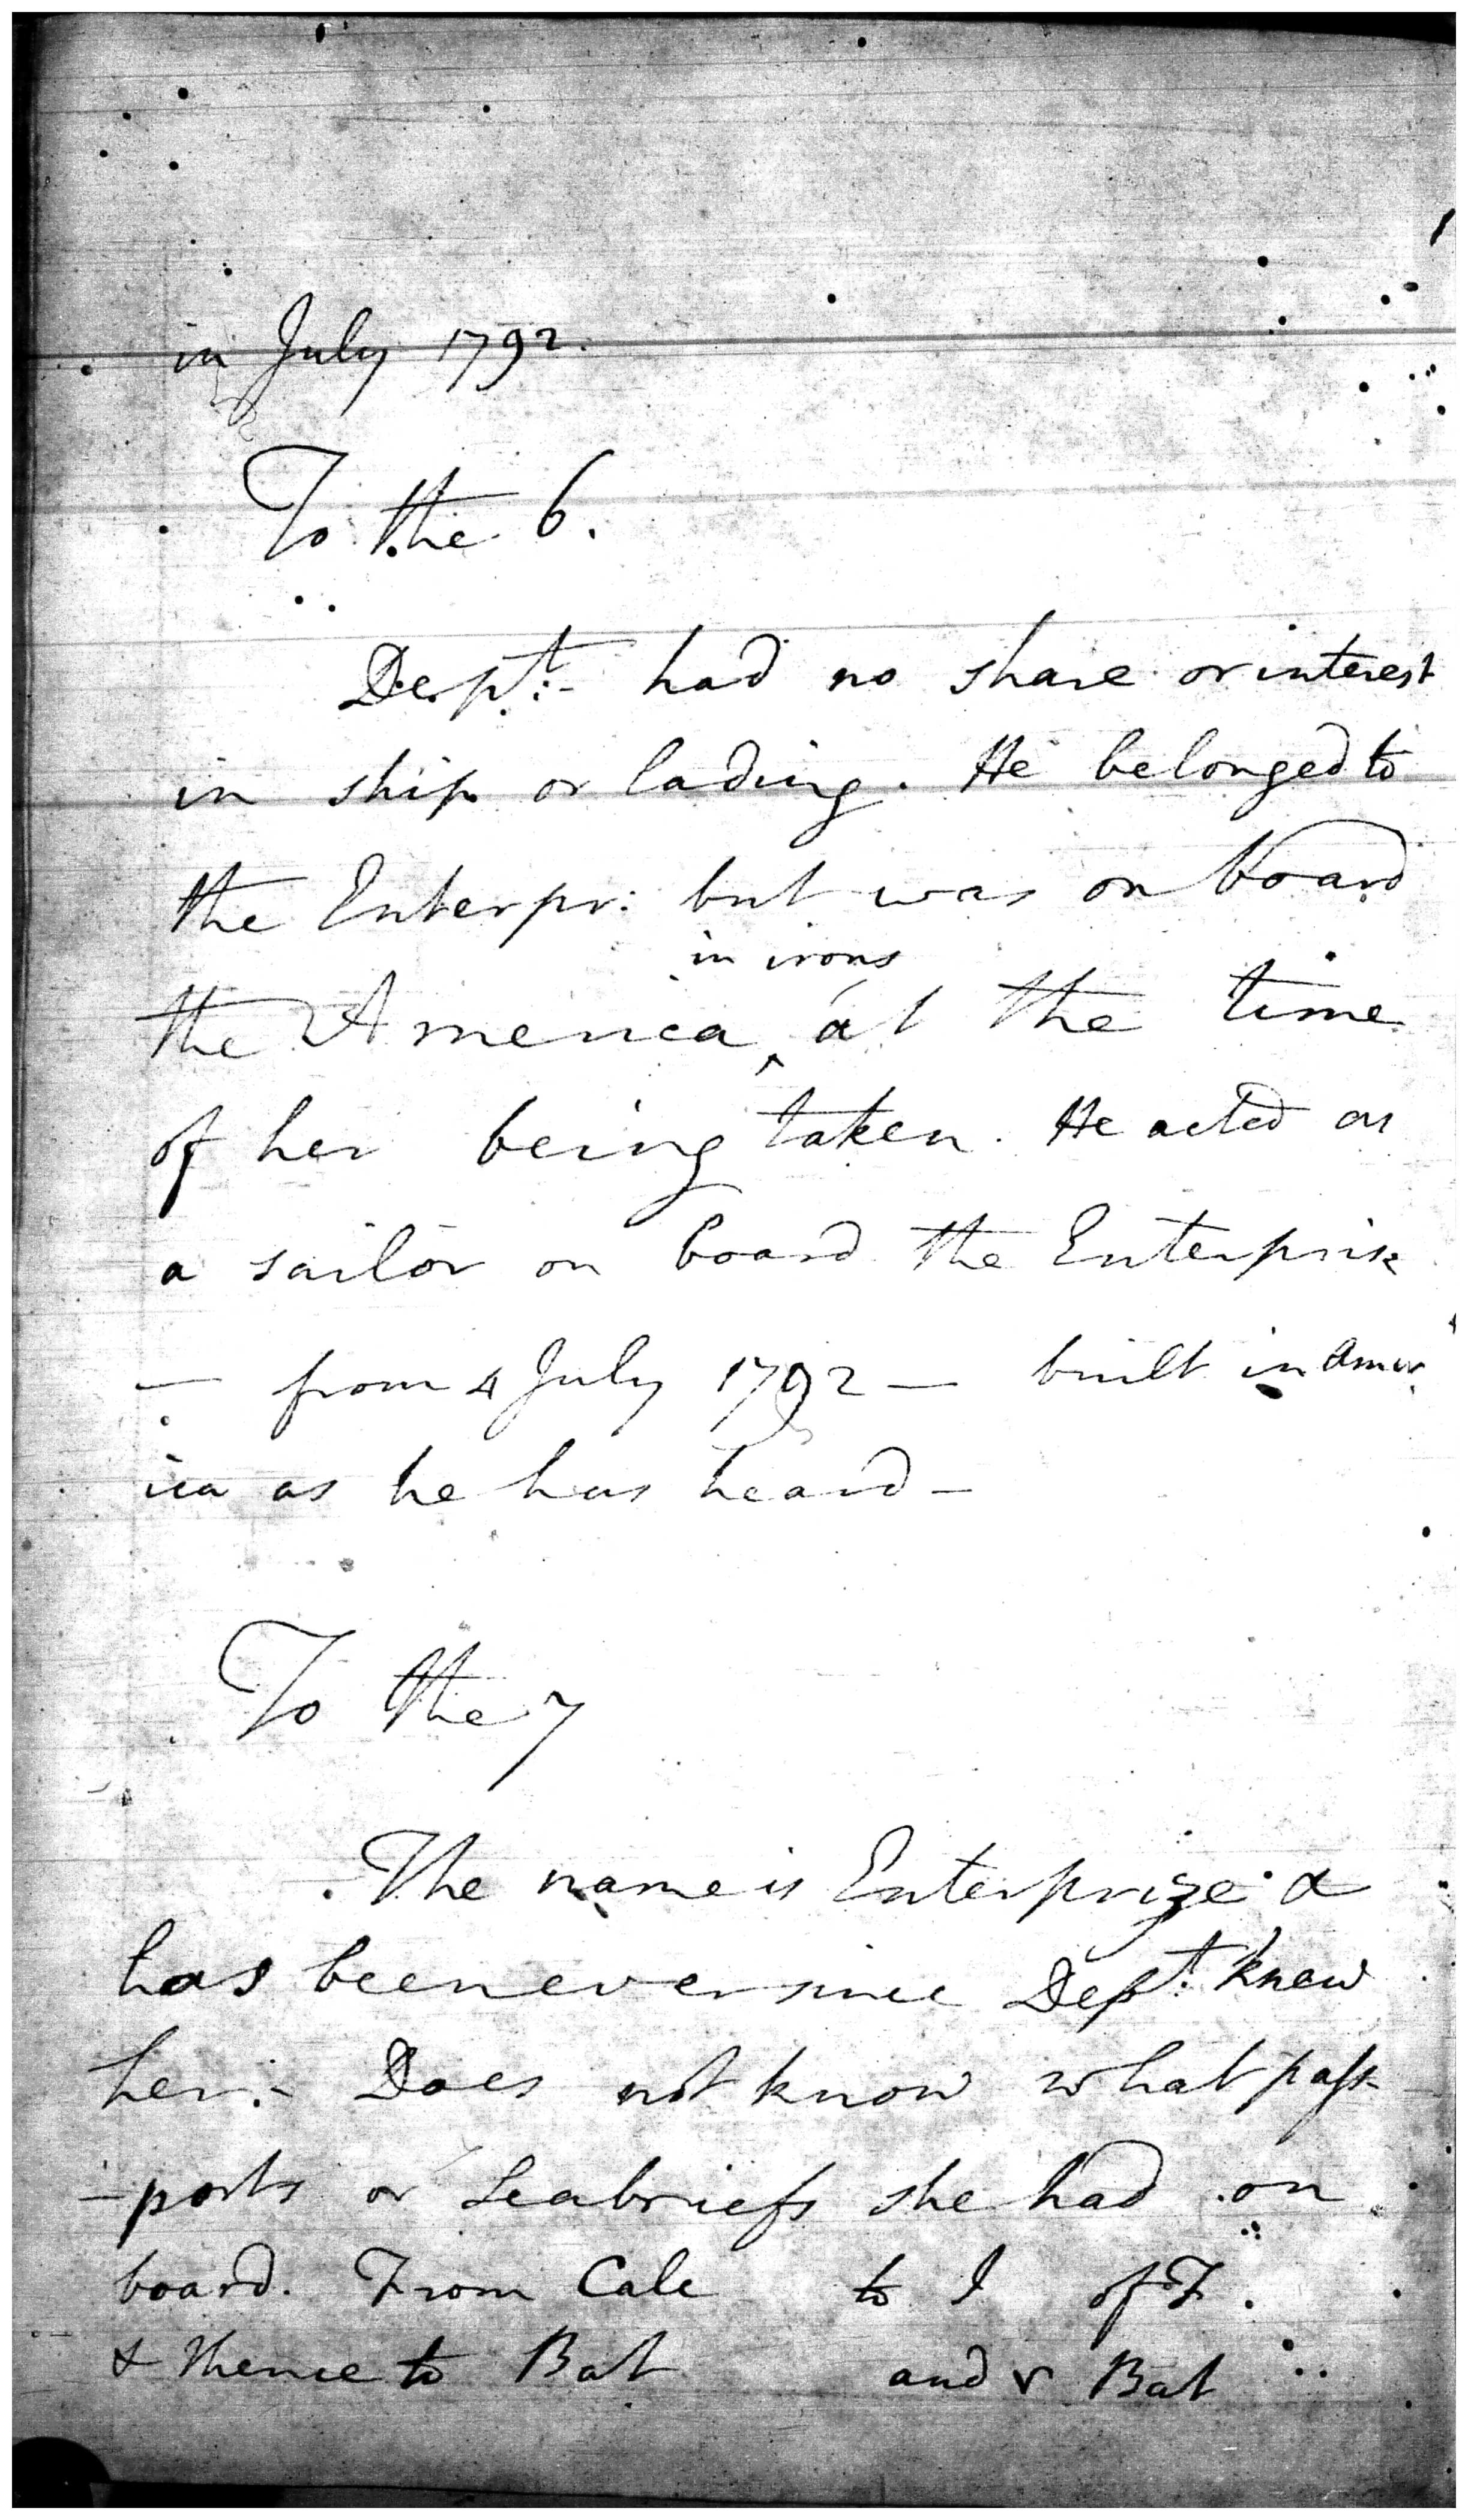 in July 1792.
To the 6.
Dept:- had no share or interest
in ship or lading. He belonged to
the Enterpr: but was on board
in irons
the America ‸ at the time
of her being taken. He acted as
a sailor on board the Enterprise
— from 4 July 1792 — built in Amer
ica as he has heard -
To the 7
The name is Enterprize &
has been ever since Dept. knew
her:- Does not know what pass
-ports or Seabriefs she had on
board. From Calc to I of F.
& thence to Bat and Bat